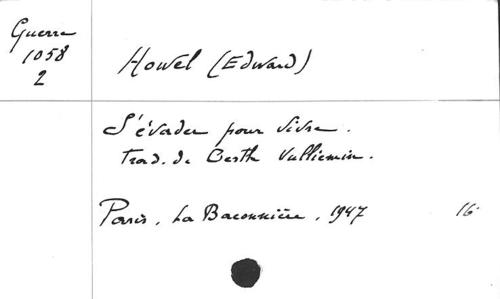 Guerre
1058
2
Howel (Edward)
S'évader pour vivre.
Trad. de Berthe Vulliemin.
Paris, La Baconnière, 1947 16